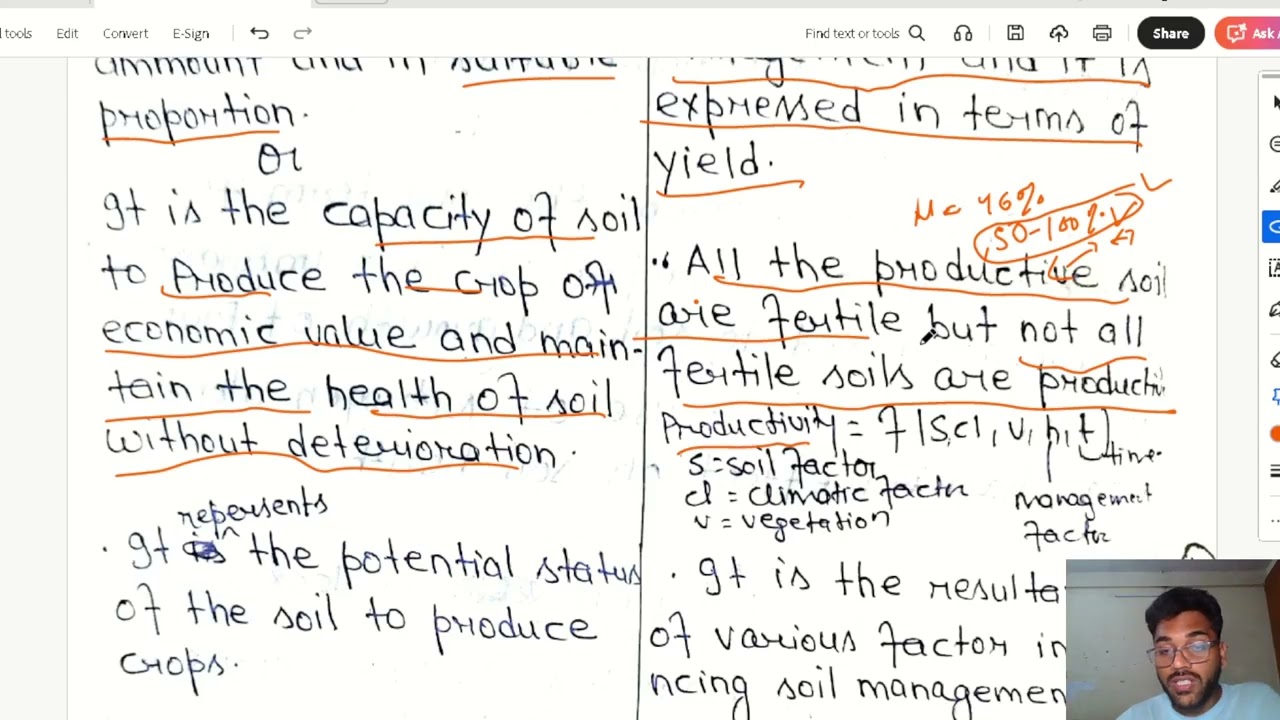 l tools Edit Convert E-Sign Find text or tools Share Ask A
ammount and in suitable
proportion.
Or
It is the capacity of soil
to Produce the crop of
economic value and main-
tain the health of soil
without deterioration.
repersents
. It the potential status
of the soil to produce
crops.
and it is
expressed in terms of
yield.
46%
50-100%
" All the productive soil
are fertile but not all
fertile soils are producti
Productivity = f|S, cl, v, h, t|
time
s = soil factor
cl = climatic factor
v = vegetation
management
factor
. It is the resulta
of various factor in
ncing soil managemen